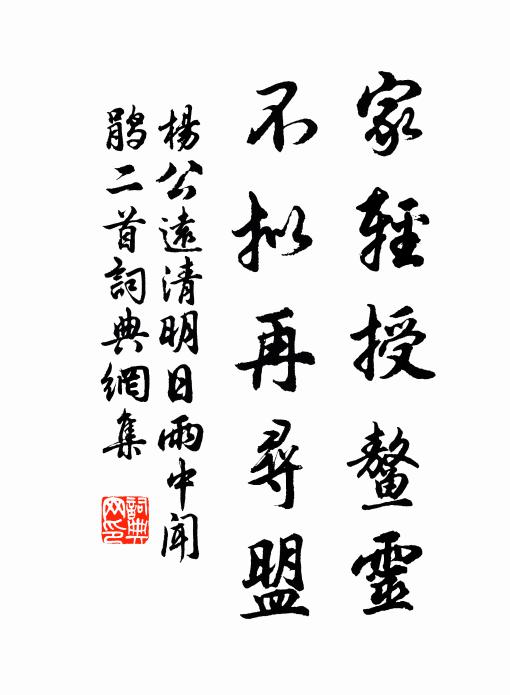 家輕授鼇靈
不拟再尋盟
楊公遠清明日雨中聞
鹃二首詞典網集
詞典
网印